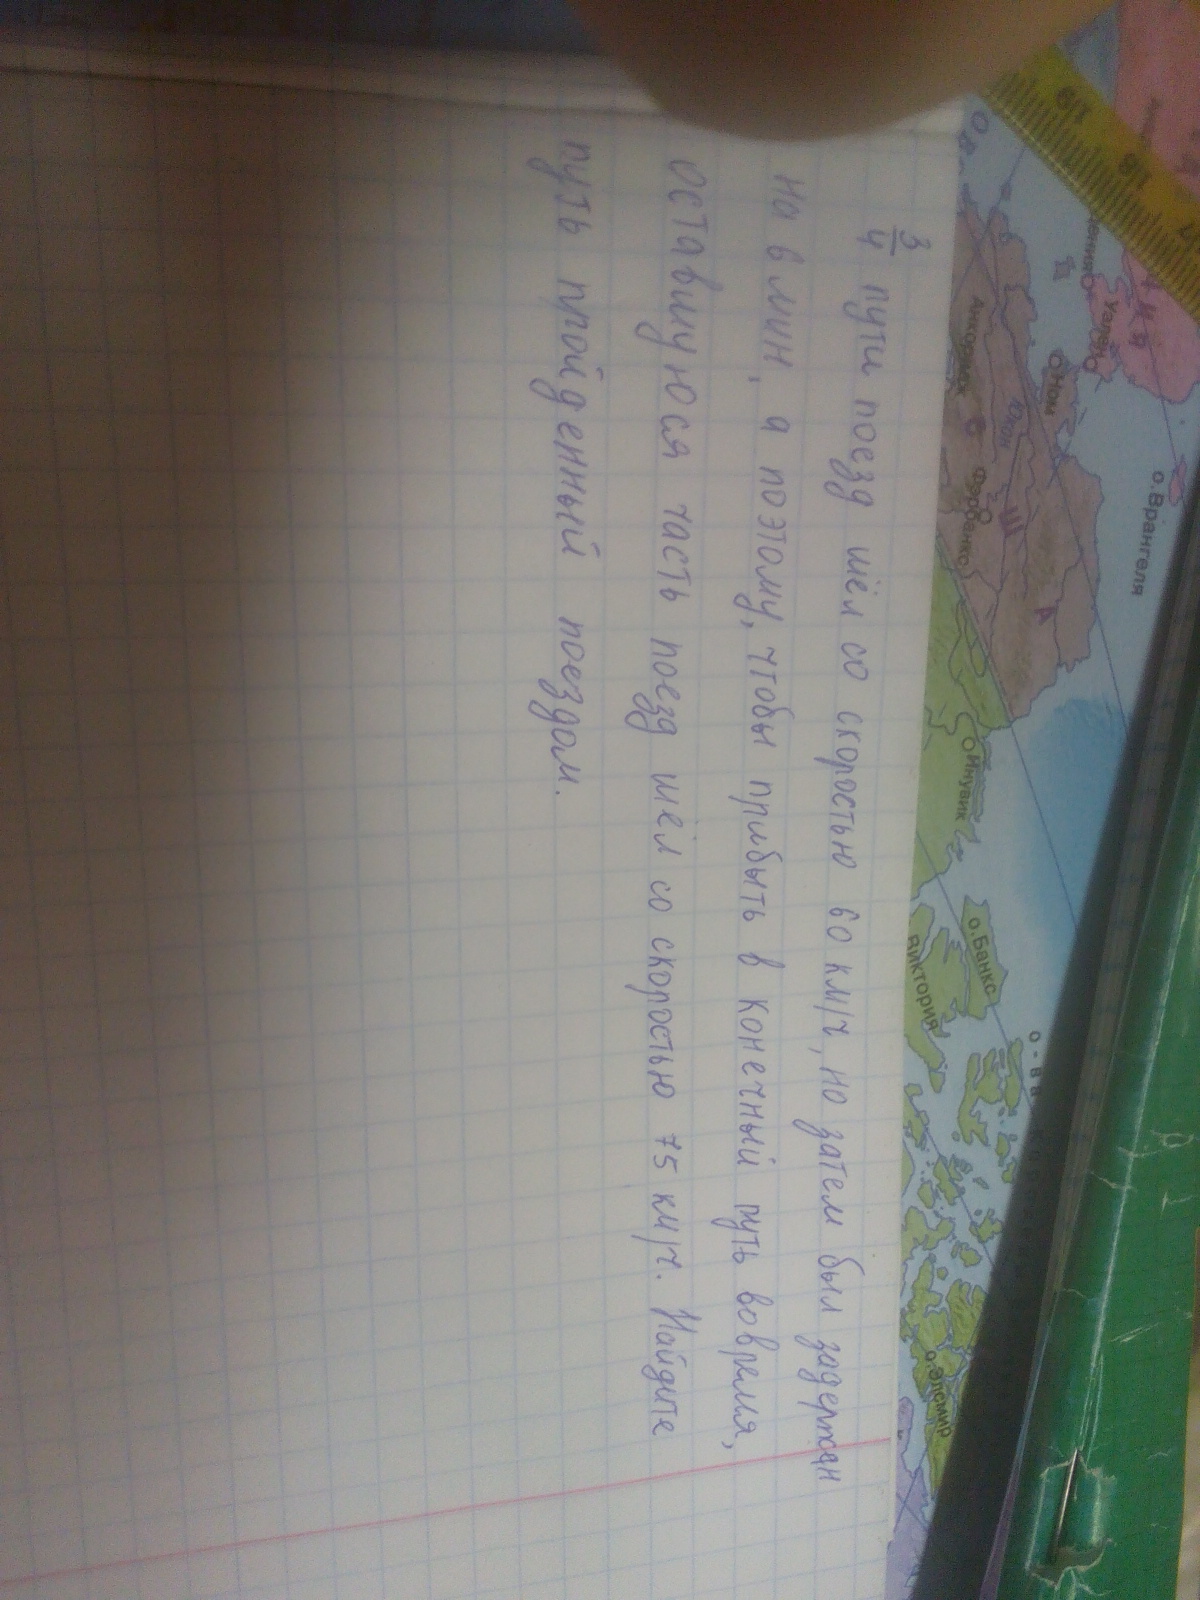 3/4 пути поезд шёл со скоростью 60 км/ч, но затем был задержан
на 6 мин, а поэтому, чтобы прибыть в конечный путь вовремя,
оставшуюся часть поезд шёл со скоростью 75 км/ч. Найдите
путь пройденный поездом.
о.Врангеля
Уэлен
Ном
Анкоридж
Юкон
Фэрбанкс
Инувик
о.Банкс
Виктория
о-ва
о.Элсмир